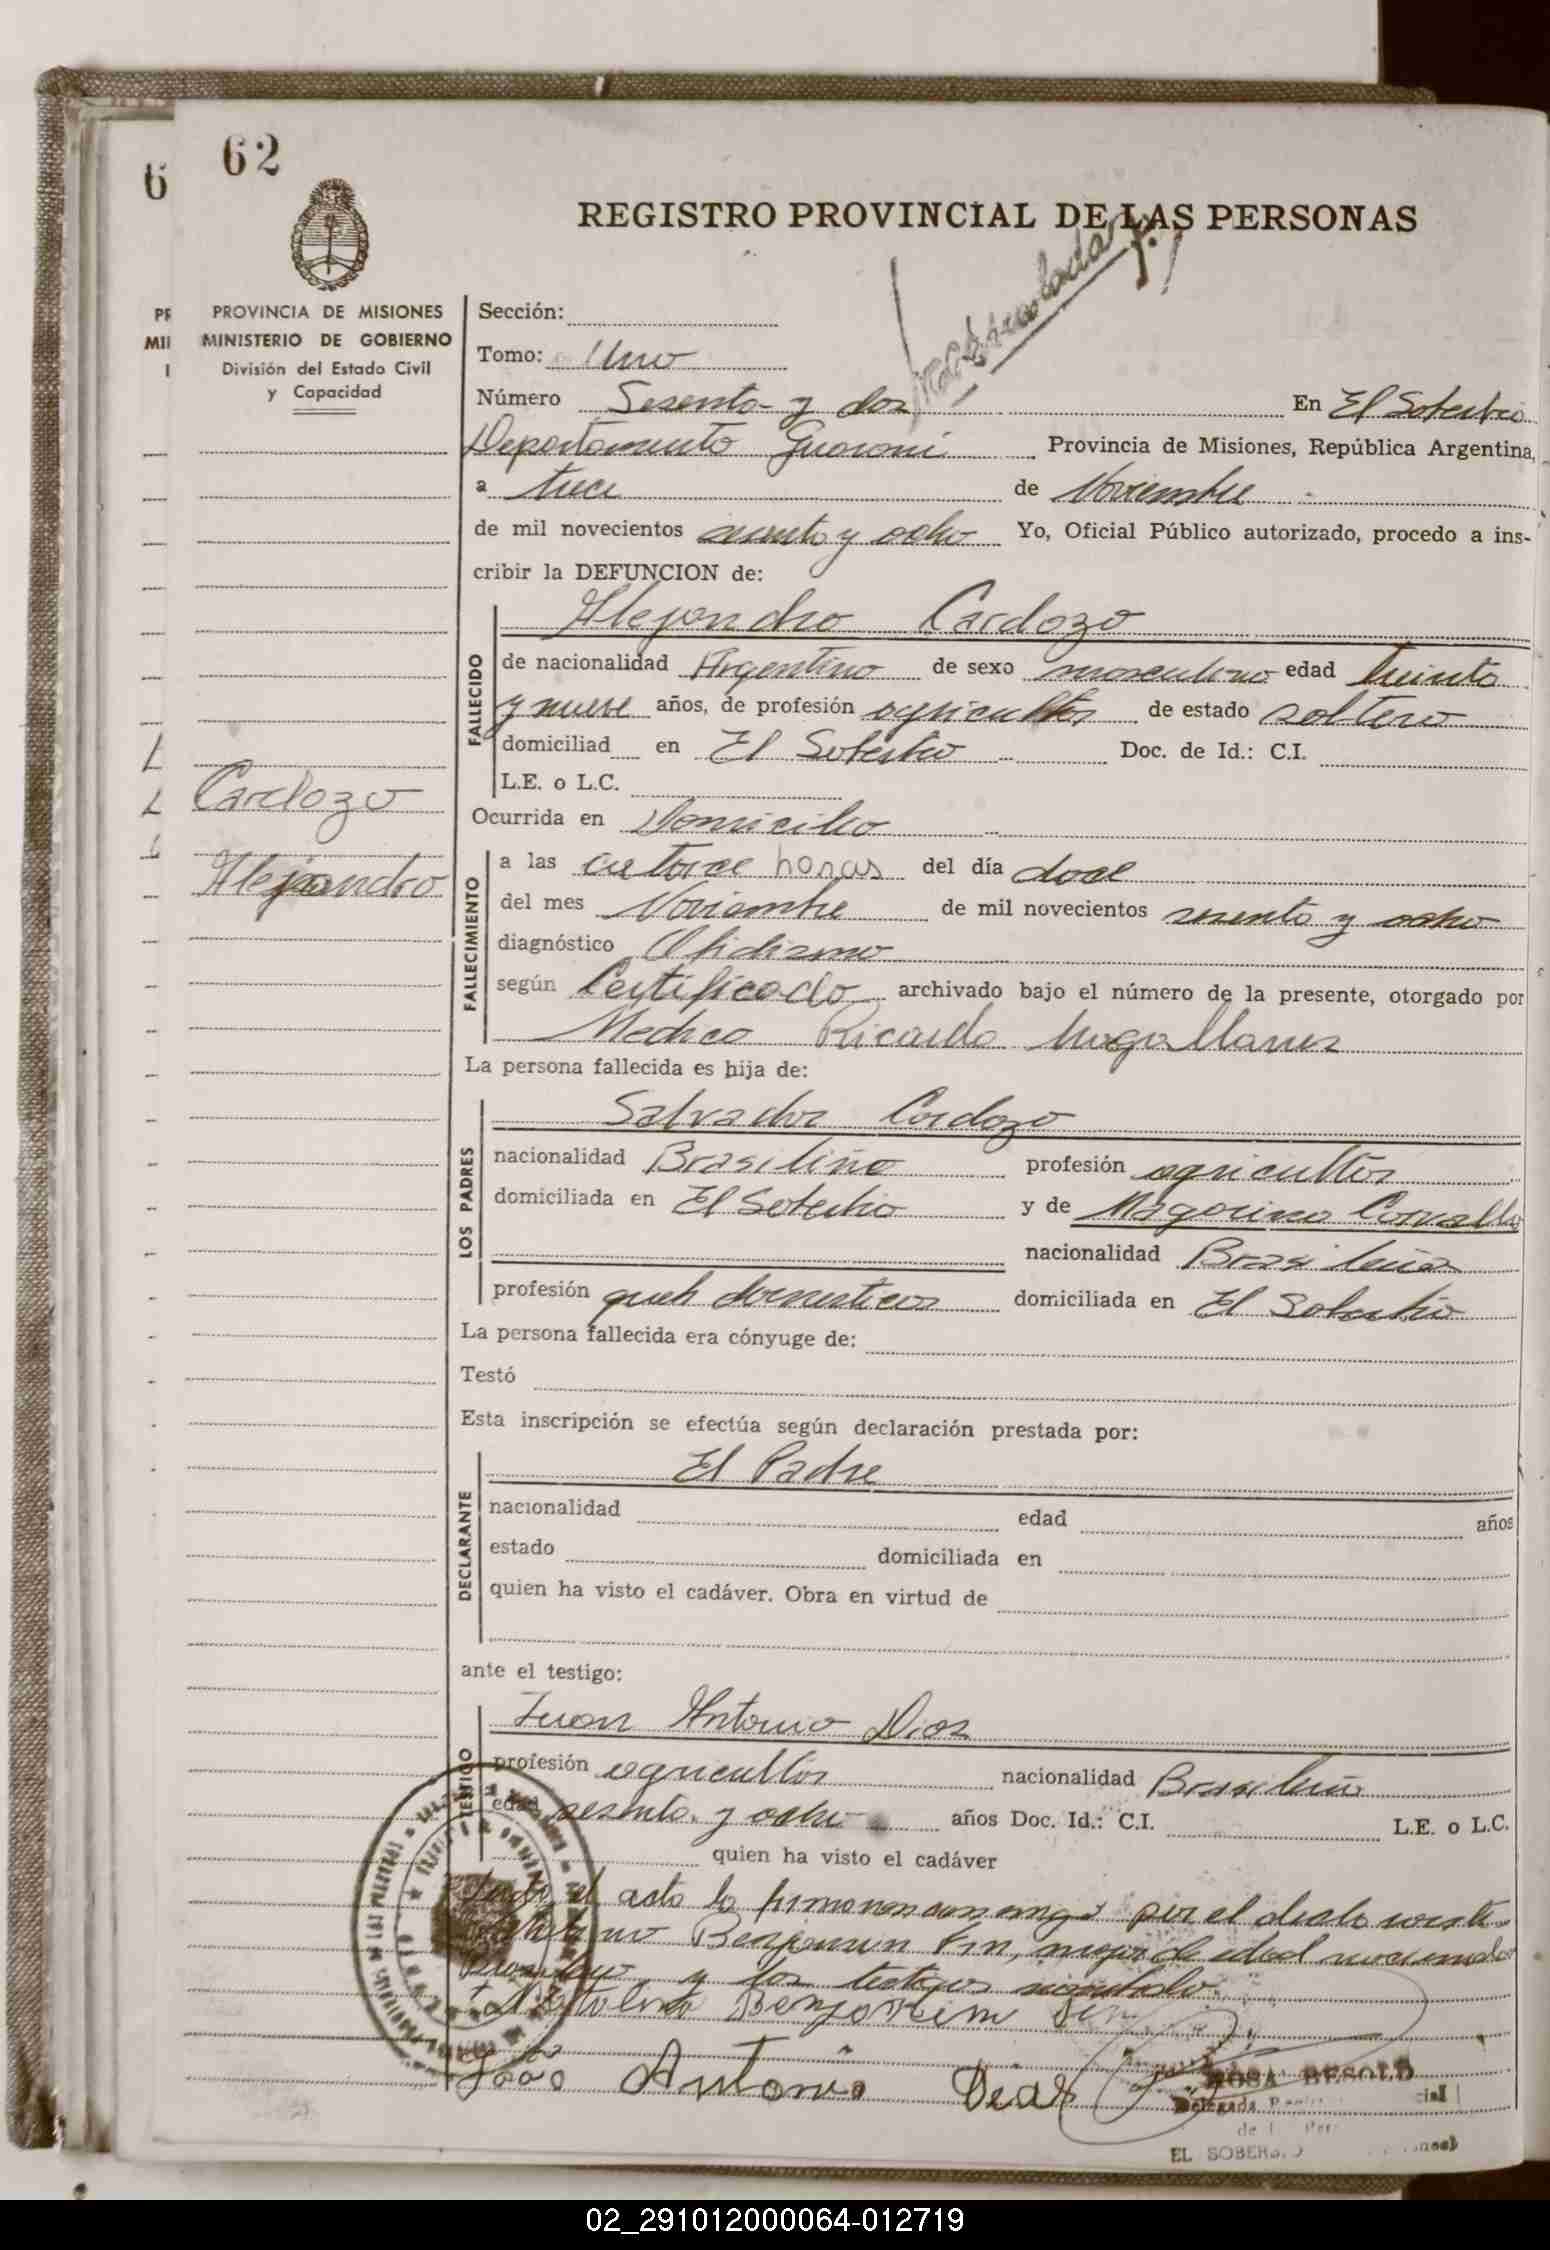 62
6
REGISTRO PROVINCIAL DE LAS PERSONAS
PROVINCIA DE MISIONES
MINISTERIO DE GOBIERNO
División del Estado Civil
y Capacidad
Cardozo
Alejandro
Sección:
Tomo: Uno
Número Sesenta y dos En El Soberbio
Departamento Guarani Provincia de Misiones, República Argentina,
a trece de Noviembre
de mil novecientos sesenta y ocho Yo, Oficial Público autorizado, procedo a ins-
cribir la DEFUNCION de:
Alejandro Cardozo
FALLECIDO
de nacionalidad Argentino de sexo masculino edad treinta
y nueve años, de profesión agricultor de estado soltero
domiciliad en El Soberbio Doc. de Id.: C.I.
L.E. o L.C.
Ocurrida en Domicilio
FALLECIMIENTO
a las catorce horas del día doce
del mes Noviembre de mil novecientos sesenta y ocho
diagnóstico Ofidismo
según Certificado archivado bajo el número de la presente, otorgado por
Medico Ricardo Magallanes
La persona fallecida es hija de:
LOS PADRES
Salvador Cardozo
nacionalidad Brasileño profesión agricultor
domiciliada en El Soberbio y de
nacionalidad Brasileña
profesión queh domesticos domiciliada en El Soberbio
La persona fallecida era cónyuge de:
Testó
Esta inscripción se efectúa según declaración prestada por:
DECLARANTE
El Padre
nacionalidad edad años
estado domiciliada en
quien ha visto el cadáver. Obra en virtud de
ante el testigo:
TESTIGO
Juan Antonio Dias
profesión agricultor nacionalidad Brasileño
edad sesenta y ocho años Doc. Id.: C.I. L.E. o L.C.
quien ha visto el cadáver
el acta la firman conmigo por el
Benjamin Fin, mayor de edad
y los testigos
Benjamin
João Antonio Dias
ROSA BESOLD
Delegada
EL SOBERBIO
02_291012000064-012719